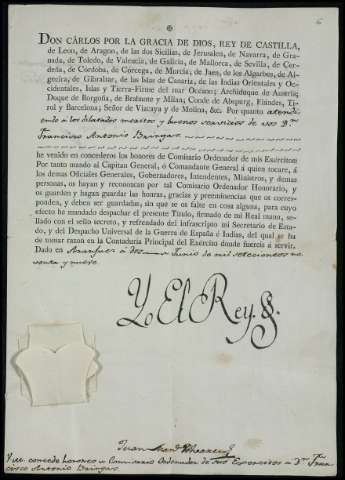 6
DON CÁRLOS POR LA GRACIA DE DIOS, REY DE CASTILLA,
de Leon, de Aragon, de las dos Sicilias, de Jerusalen, de Navarra, de Gra-
nada, de Toledo, de Valencia, de Galicia, de Mallorca, de Sevilla, de Cer-
deña, de Córdoba, de Córcega, de Murcia, de Jaen, de los Algarbes, de Al-
gecira, de Gibraltar, de las Islas de Canaria, de las Indias Orientales y Oc-
cidentales, Islas y Tierra-Firme del mar Océano; Archiduque de Austria;
Duque de Borgoña, de Brabante y Milan; Conde de Abspurg, Flándes, Ti-
rol y Barcelona; Señor de Vizcaya y de Molina, &c. Por quanto atendi-
endo á los dilatados meritos y buenos servicios de vos Dn.
Francisco Antonio Bringas
he venido en concederos los honores de Comisario Ordenador de mis Exércitos
Por tanto mando al Capitan General, ó Comandante General á quien tocare, á
los demas Oficiales Generales, Gobernadores, Intendentes, Ministros, y demas
personas, os hayan y reconozcan por tal Comisario Ordenador Honorario, y
os guarden y hagan guardar las honras, gracias y preeminencias que os correspon-
den, y deben ser guardadas, sin que se os falte en cosa alguna, para cuyo
efecto he mandado despachar el presente Título, firmado de mi Real mano, se-
llado con el sello secreto, y refrendado del infrascripto mi Secretario de Esta-
do, y del Despacho Universal de la Guerra de España é Indias, del qual se ha
de tomar razon en la Contaduría Principal del Exército donde fuereis á servir.
Dado en Aranjuez á dos de Junio de mil setecientos no-
venta y nueve.
Yo El Rey.
Juan Man.l Alvarez
V.M. concede honores de Comisario Ordenador de sus Exercitos a Dn. Fran-
cisco Antonio Bringas